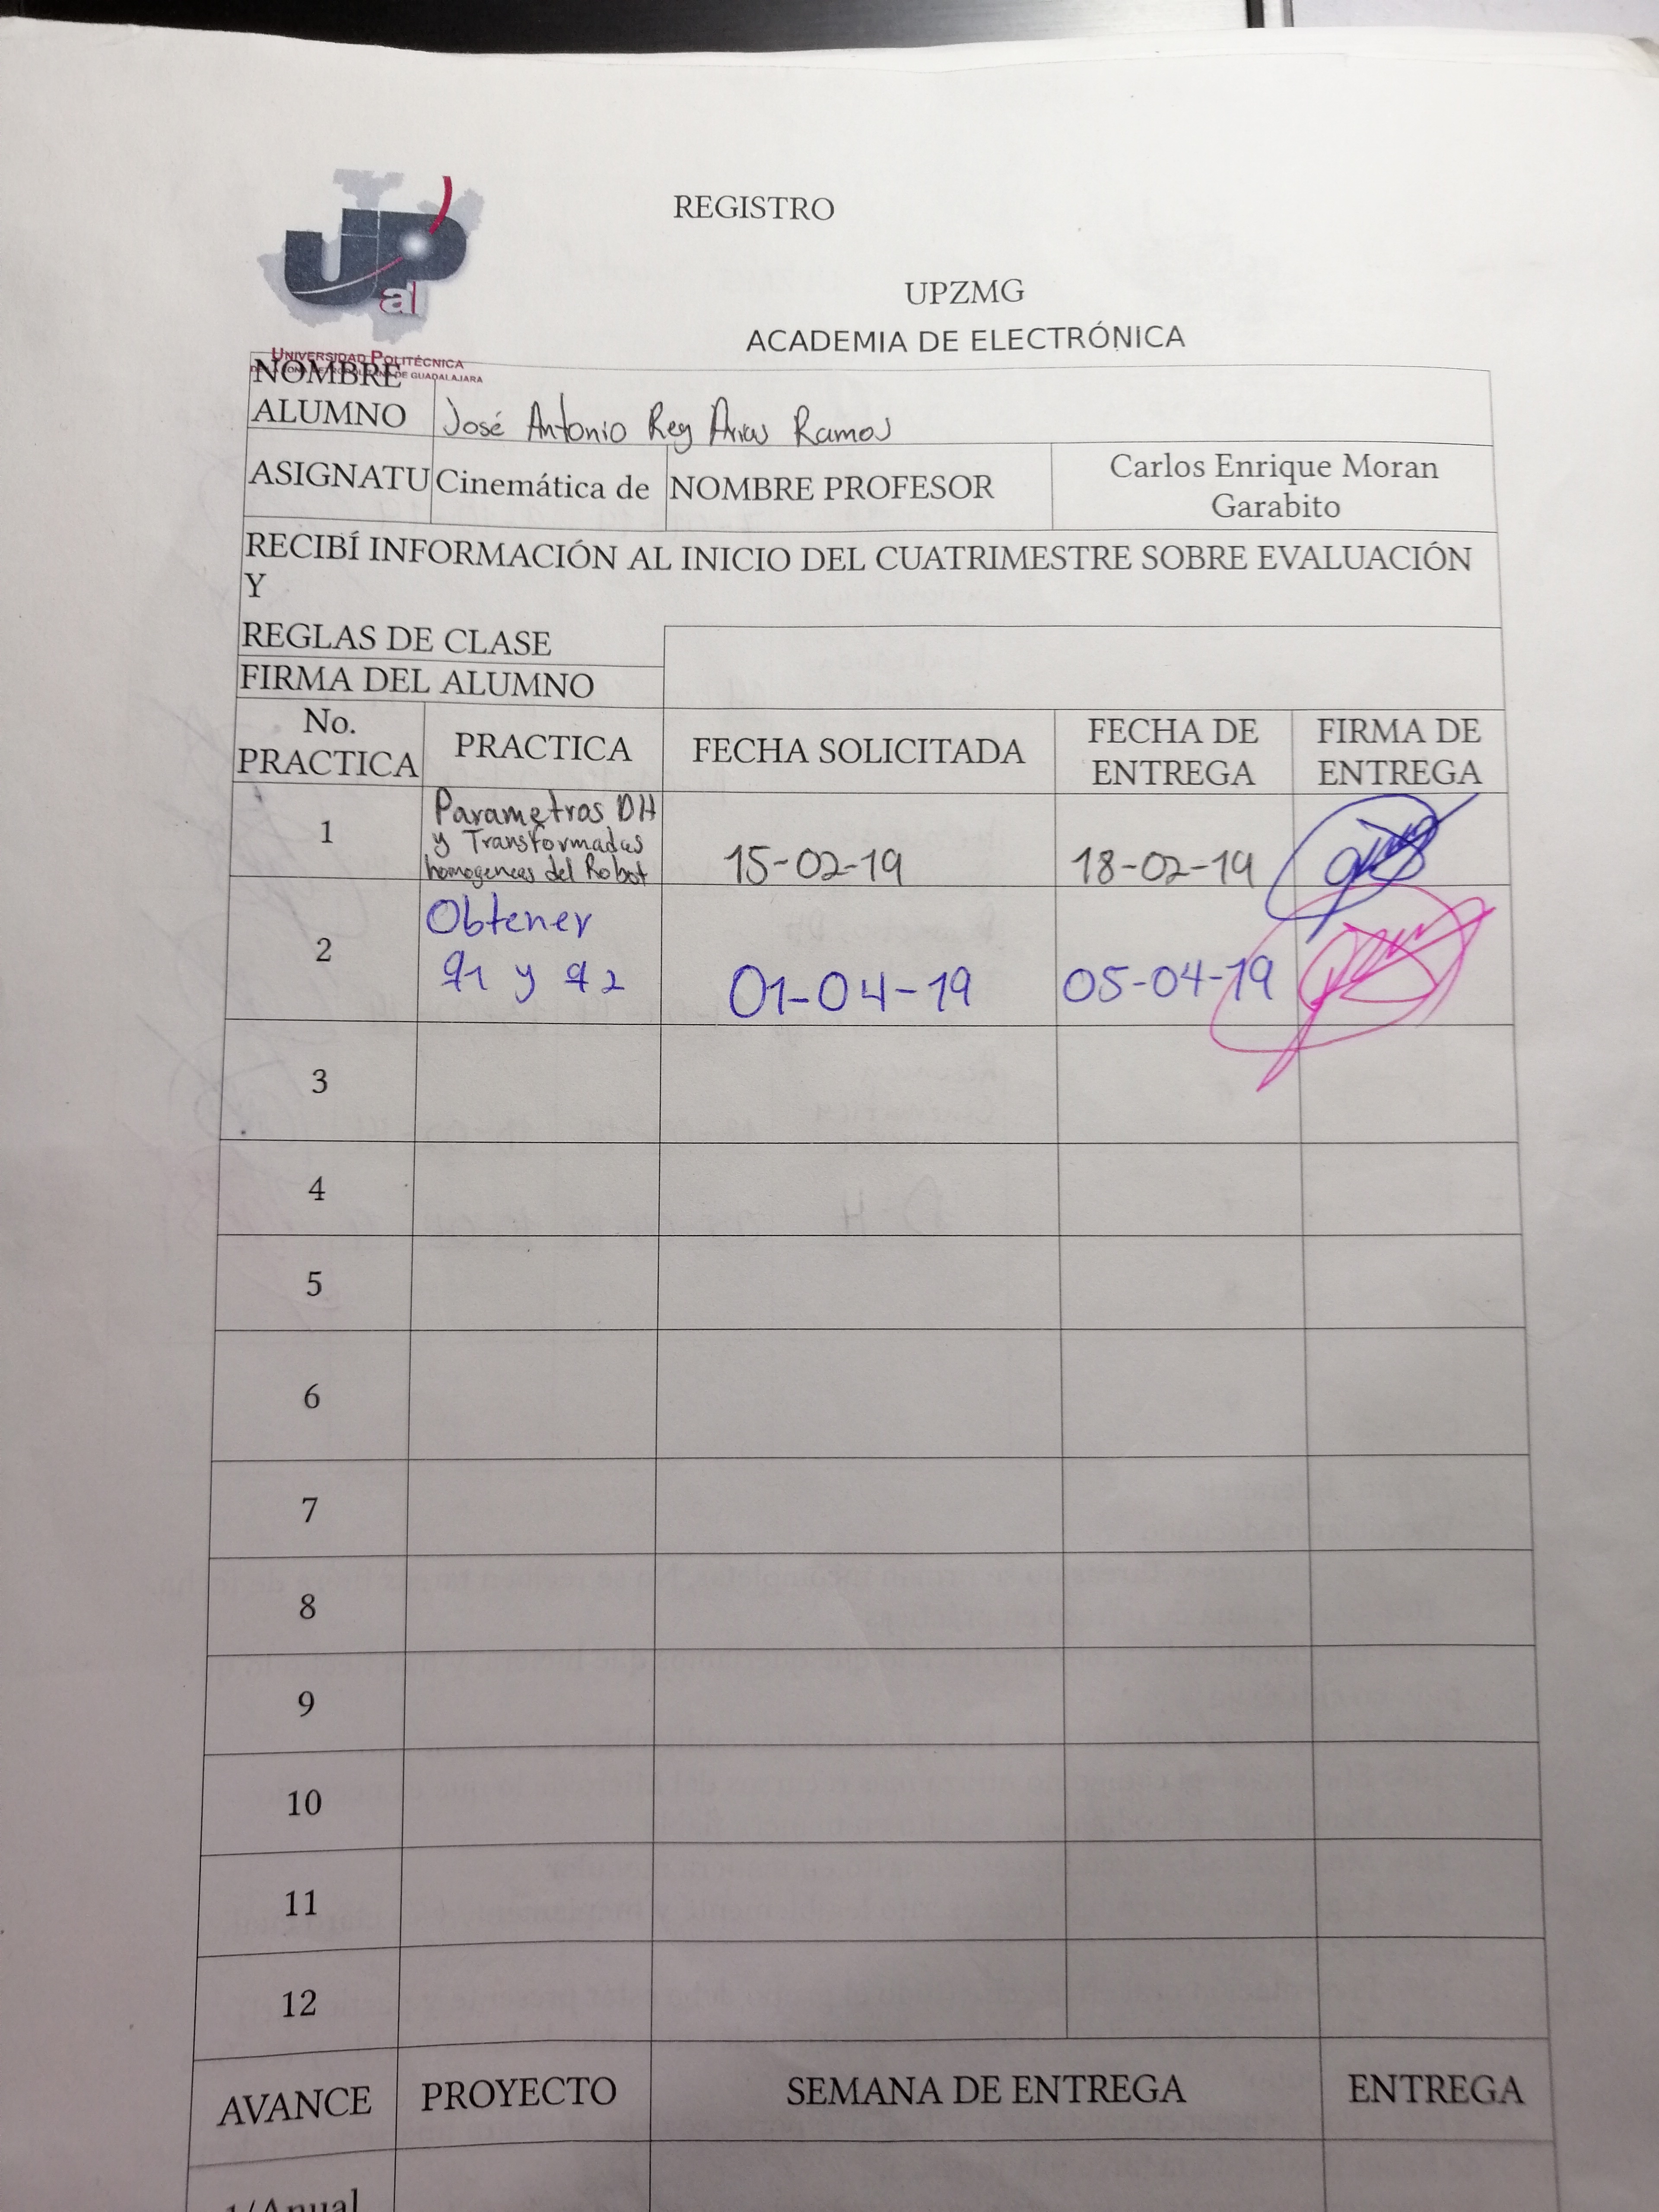 REGISTRO
UPZMG
ACADEMIA DE ELECTRÓNICA
UP
al
UNIVERSIDAD POLITÉCNICA
DE LA ZONA METROPOLITANA DE GUADALAJARA
NOMBRE
ALUMNO José Antonio Rey Arias Ramos
ASIGNATU Cinemática de NOMBRE PROFESOR Carlos Enrique Moran
Garabito
RECIBÍ INFORMACIÓN AL INICIO DEL CUATRIMESTRE SOBRE EVALUACIÓN
Y
REGLAS DE CLASE
FIRMA DEL ALUMNO
No.
PRACTICA PRACTICA FECHA SOLICITADA FECHA DE
ENTREGA FIRMA DE
ENTREGA
1 Parametros DH
y Transformadas
homogeneas del Robot 15-02-19 18-02-19
2 Obtener
q1 y q2 01-04-19 05-04-19
3
4
5
6
7
8
9
10
11
12
AVANCE PROYECTO SEMANA DE ENTREGA ENTREGA
1/Anual